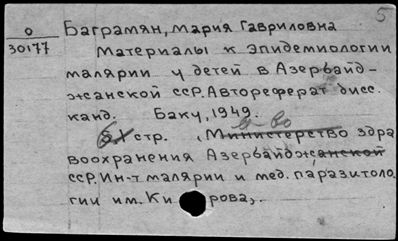 5
0
30177
Баграмян, Мария Гавриловна
Материалы к эпидемиологии
малярии у детей в Азербайд-
жанской ССР. Автореферат дисс.
канд. Баку, 1949.
стр. (Министерство здра
м-во
воохранения Азербайджанской
ССР. Ин-т малярии и мед. паразитоло
гии им. Ки рова).